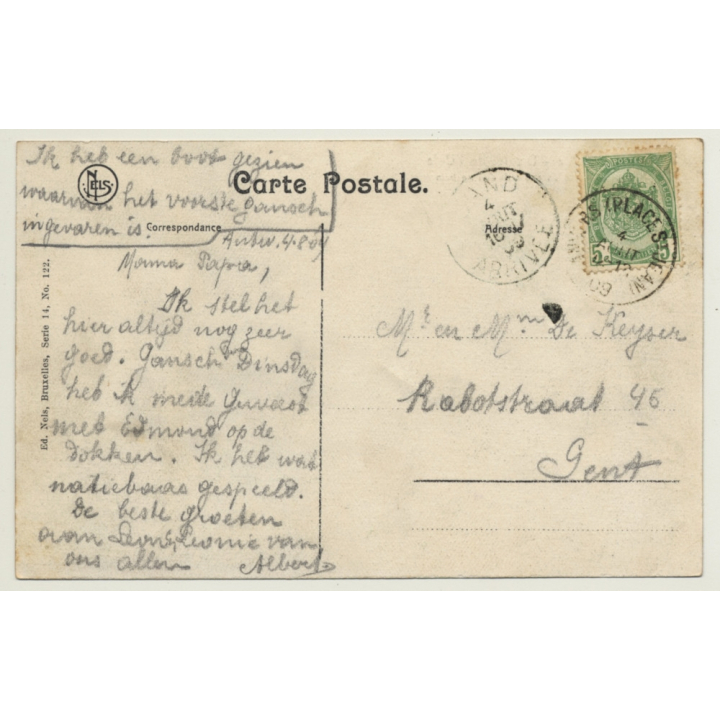 Ik heb een boot gezien
waarvan het voorste gansch
ingevaren is.
NELS
Carte Postale.
Correspondance
Adresse
Antw. 4.8.09
Mama Papa,
Ik stel het
hier altijd nog zeer
goed. Gansch den Dinsdag
heb ik mede geweest
met Edmond op de
dokken. Ik heb wat
natiebaas gespeeld.
De beste groeten
aan Leon & Leonie van
ons allen Albert
Ed. Nels, Bruxelles, Serie 14, No. 122.
Mr en Mme De Keyser
Rabotstraat 46
Gent
AND
4
15
09
ARRIVEE
POSTES
5
ANVERS (PLACE
4
09